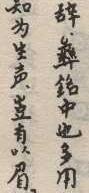 辞，彝铭中也多用
知为生声，岂有以眉